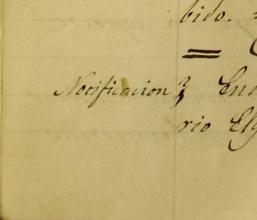 bido. =
Notificacion } En
rio El